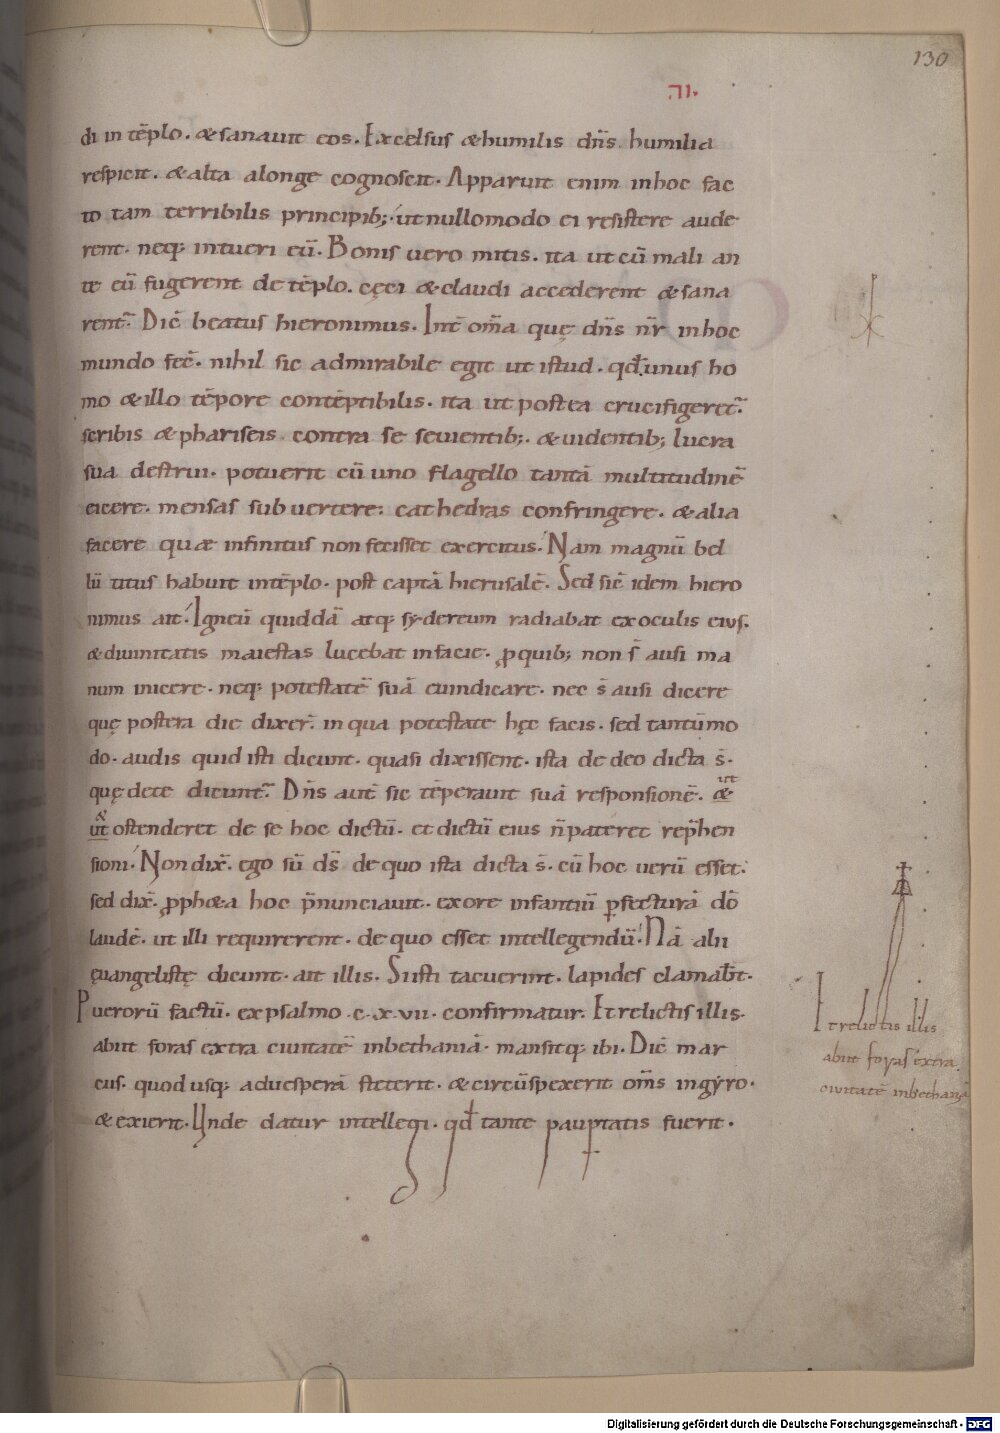 130
di in tēplo. & sanauit eos. Excelsus & humilis dn̄s humilia
respicit. & alta a longe cognoscit. Apparuit enim in hoc fac
to tam terribilis principib; ut nullomodo ei resistere aude
rent. neq; intueri eū. Bonis uero mitis. ita ut cū mali an
te eū fugerent de tēplo. cęci & claudi accederent & sana
rent̃. Dic̄ beatus hieronimus. Int̄ om̄a quę dn̄s nr̄ in hoc
mundo fec̄. nihil sic admirabile egit ut istud. qđ unus ho
mo & illo tēpore contēptibilis. ita ut postea crucifigeret̃.
scribis & phariseis contra se seuientib;. & uidentib; lucra
sua destrui. potuerit cū uno flagello tantā multitudinē
eicere. mensas subuertere. cathedras confringere. & alia
facere quæ infinitus non fecisset exercitus. Nam magnū bel
lū titus habuit in tēplo. post captā hierusalē. Sed sic̄ idem hiero
nimus ait. Igneū quiddā atq; sydereum radiabat ex oculis eius.
& diuinitatis maiestas lucebat in facie. ꝓ quib; non s̄ ausi ma
num inicere. neq; potestatē suā euindicare. nec s̄ ausi dicere
quę postera die dixer̄. in qua potestate hęc facis. sed tantūmo
do. audis quid isti dicunt. quasi dixissent. ista de deo dicta s̄.
quę de te dicunt̃. Dn̄s aut̄ sic tēperauit suā responsionē. &
ut
&
ut ostenderet de se hoc dictū. et dictū eius n̄ pateret rep̄hen
sioni. Non dix̄. ego sū ds̄ de quo ista dicta s̄. cū hoc uerū esset.
sed dix̄. ꝓph&a hoc p̄nunciauit. ex ore infantiū ꝑfecturā dō
laudē. ut illi requirerent. de quo esset intellegendū. Nā alii
ęuangelistę dicunt. ait illis. Si isti tacuerint. lapides clamab̄t.
Puerorū factū. ex psalmo .c.x.vii. confirmatur. Et relictis illis.
abiit foras extra ciuitatē in bethaniā. mansitq; ibi. Dic̄ mar
cus. quod usq; ad uesperā steterit. & circūspexerit om̄s in gyro.
& exierit. Unde datur intellegi. qđ tante pauꝑtatis fuerit.
Et relictis illis
abiit foras extra
ciuitatē in bethaniā
Digitalisierung gefördert durch die Deutsche Forschungsgemeinschaft - DFG